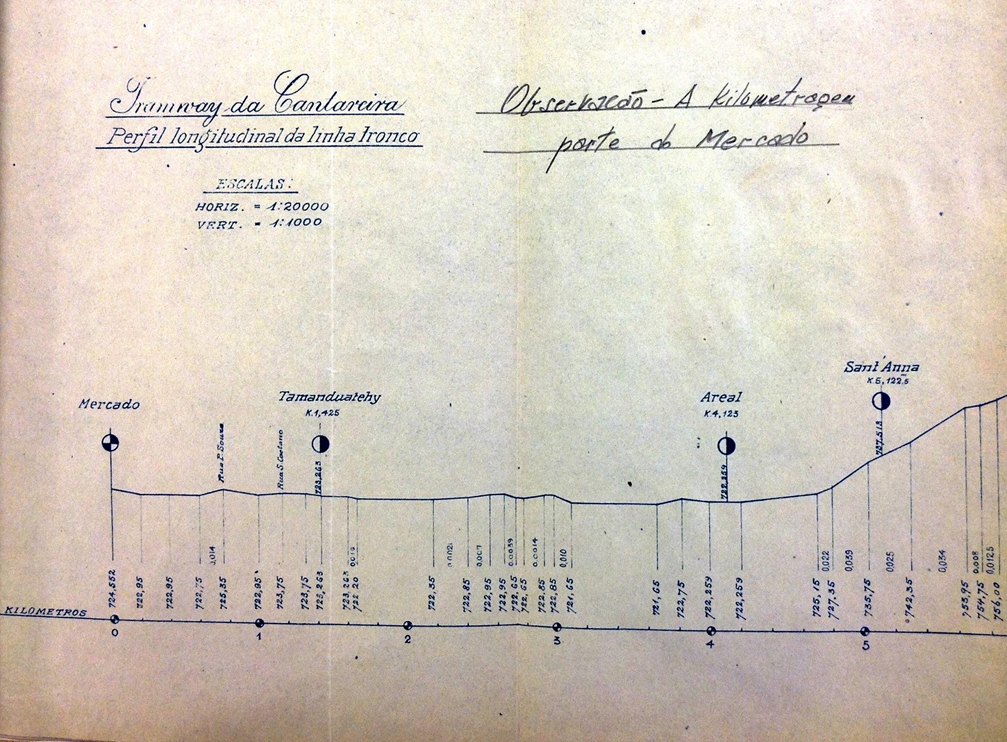 Tramway da Cantareira
Perfil longitudinal da linha tronco
ESCALAS:
HORIZ. = 1:20000
VERT. = 1:1000
Observação - A kilometragem
parte do Mercado
Mercado
Tamanduatehy
K.1,425
Areal
K.4,123
Sant'Anna
K.5,122.5
Rua P. Souza
Rua S. Caetano
723,263
722,259
737,513
0,014
0,010
0,022
0,039
0,025
0,034
0,008
0,0125
724,552
722,95
722,95
722,75
725,35
722,95
723,75
723,75
723,263
723,263
722,20
722,35
722,85
722,95
722,95
722,65
722,65
722,85
722,85
721,65
721,65
722,75
722,259
722,259
725,15
727,35
735,75
742,35
753,95
754,75
756,00
KILOMETROS
0
1
2
3
4
5